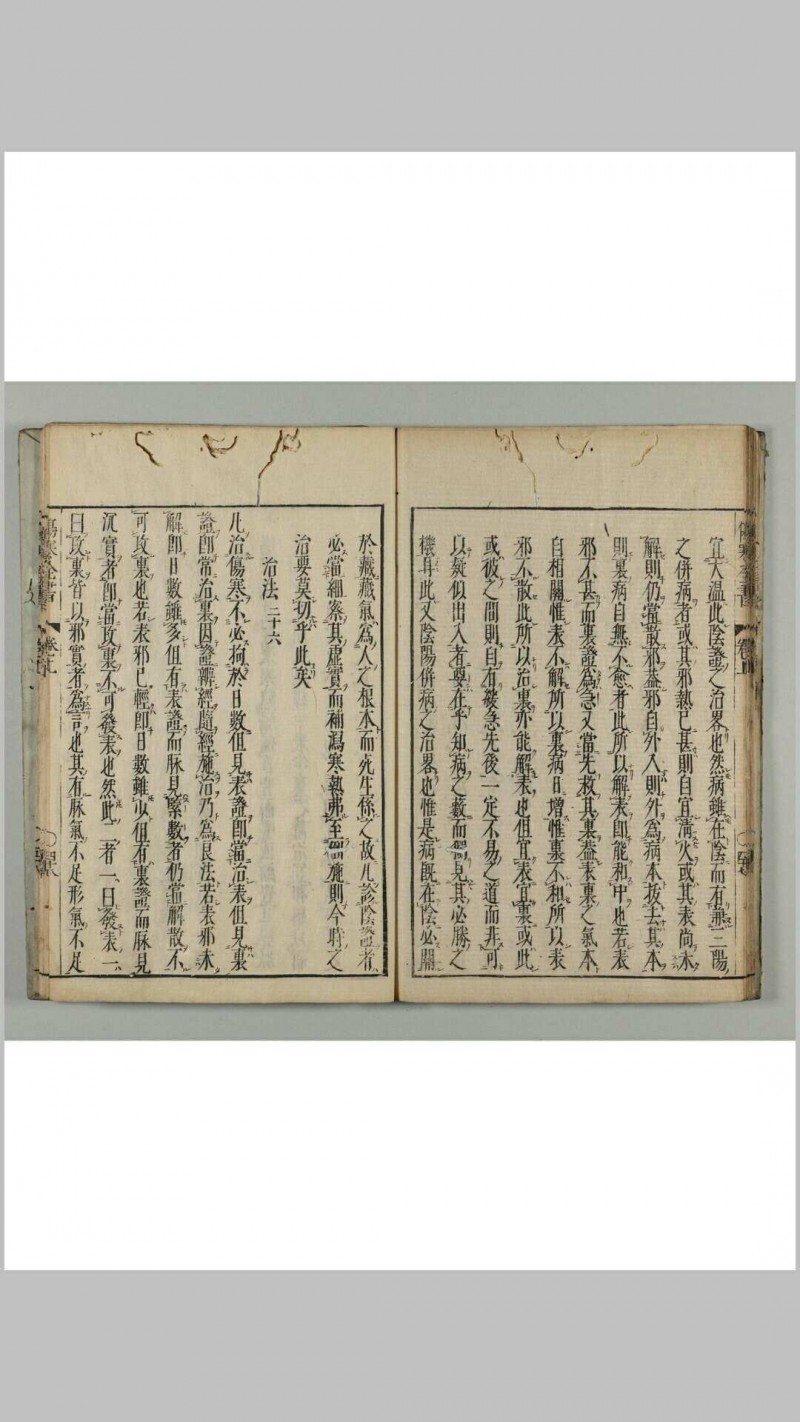 宜大温此陰證之治畧也然病雖在陰而有兼三陽
之併病者或其邪熱已甚則自宜清火或其表尚未
解則仍當散邪蓋邪自外入則外為病本拔去其本
則裏病自無不愈者此所以解表即能和中也若表
邪不甚而裏證為急又當先救其裏蓋表裏之氣本
自相關惟表不解所以裏病日增惟裏不和所以表
邪不散此所以治裏亦能解表也但宜表宜裏或此
或彼之間則自有緩急先後一定不易之道而非可
以疑似出入者要在乎知病之藪而獨見其必勝之
機耳此又陰陽併病之治畧也惟是病既在陰必關
於藏藏氣為人之根本而死生係之故凡診陰證者
必當細察其虛實而補瀉寒熱弗至倒施則今時之
治要莫切乎此矣
治法 二十六
凡治傷寒不必拘於日數但見表證即當治表但見裏
證即當治裏因證辨經隨經施治乃為良法若表邪未
解即日數雖多但有表證而脉見緊數者仍當解散不
可攻裏也若表邪已輕即日數雖少但有裏證而脉見
沉實者即當攻裏不可發表也然此二者一曰發表一
曰攻裏皆以邪實者為言也其有脉氣不足形氣不足